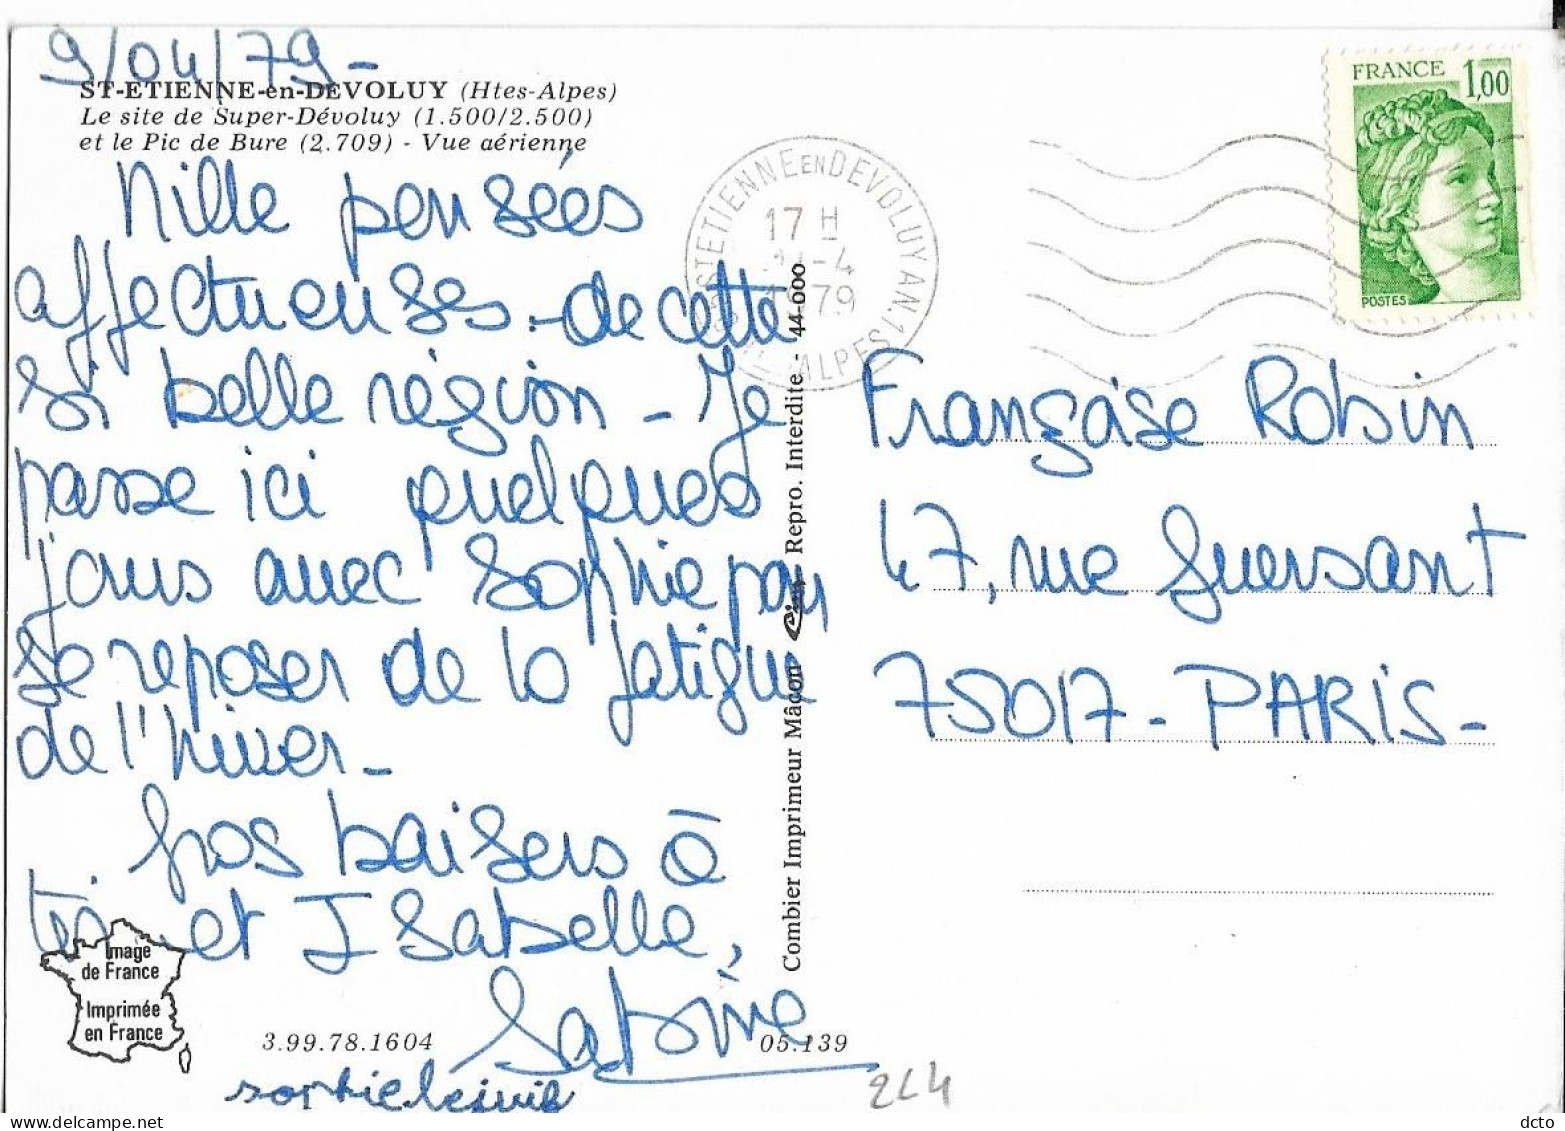 9/04/79-
ST-ETIENNE-en-DÉVOLUY (Htes-Alpes)
Le site de Super-Dévoluy (1.500/2.500)
et le Pic de Bure (2.709) - Vue aérienne
Mille pensées
affectueuses - de cette
si belle région - Je
passe ici quelques
jours avec Sophie pour
se reposer de la fatigue
de l'hiver -
Gros baisers à
toi et Isabelle,
Sabine
Image
de France
Imprimée
en France
3.99.78.1604
05.139
sophie
Combier Imprimeur Mâcon Cim Repro. Interdite - 44-000
ST ETIENNE EN DEVOLUY AN.1
17 H
-4
1979
ALPES
FRANCE 1,00
POSTES
Françoise Robin
47, rue Guersant
75017 - PARIS -
224
dcto